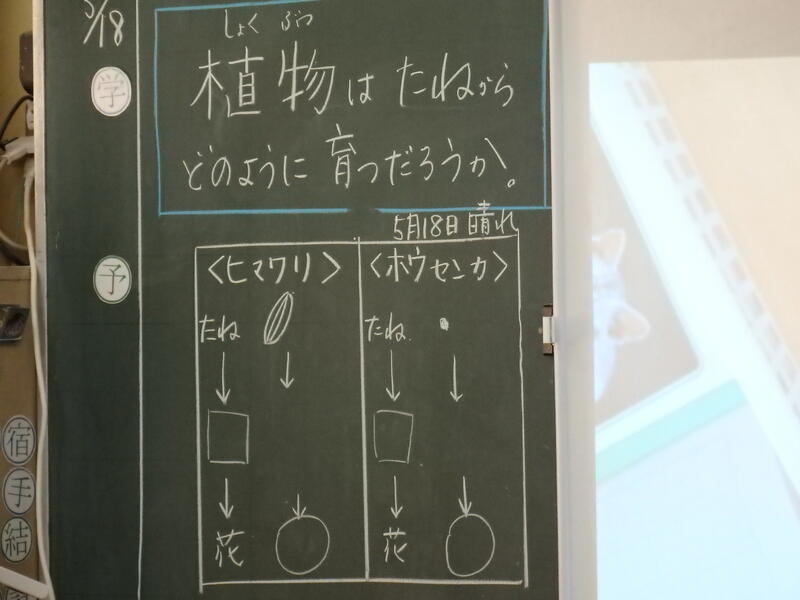 5/18
学
しょく ぶつ
植物はたねから
どのように育つだろうか。
5月18日 晴れ
予
<ヒマワリ>
たね
花
<ホウセンカ>
たね
花
宿
手
結